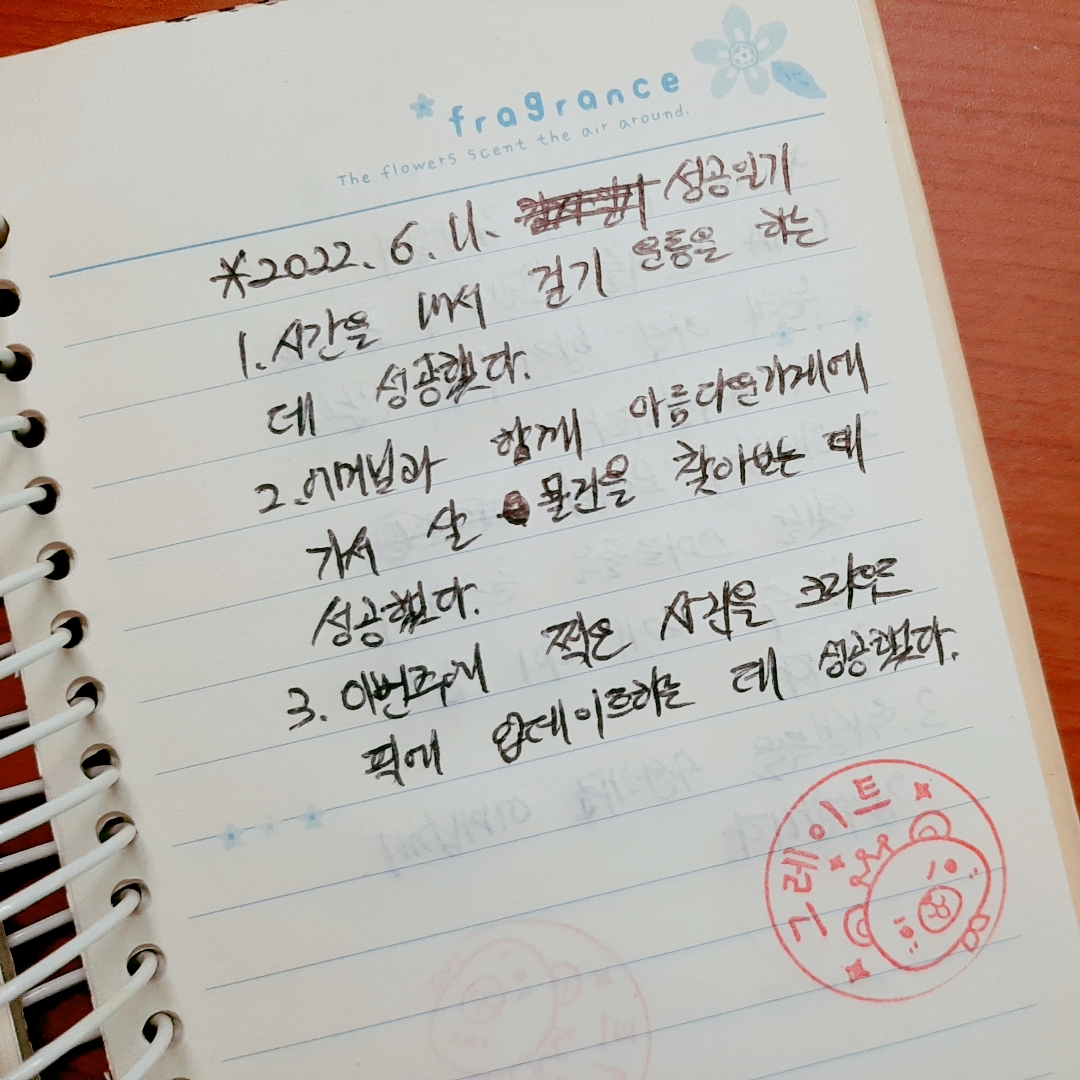 fragrance
The flowers scent the air around.
*2022. 6. 11. 성공일기
1. 시간을 내서 걷기 운동을 하는
데 성공했다.
2. 어머님과 함께 아름다운가게에
가서 살 물건을 찾아보는 데
성공했다.
3. 이번주에 찍은 사진을 크라우드
픽에 업데이트하는 데 성공했다.
그레이트